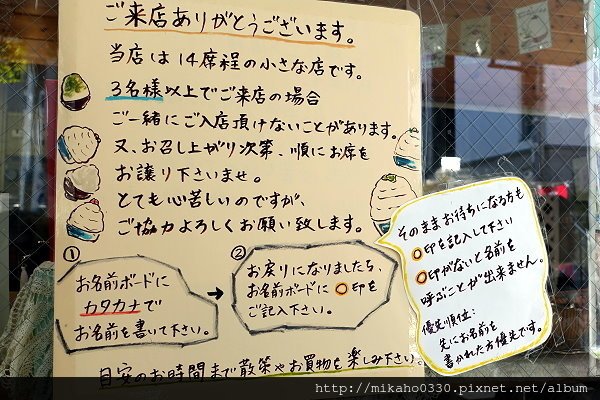 ご来店ありがとうございます。
当店は14席程の小さな店です。
3名様以上でご来店の場合
ご一緒にご入店頂けないことがあります。
又、お召し上がり次第、順にお席を
お譲り下さいませ。
とても心苦しいのですが、
ご協力よろしくお願い致します。
①
お名前ボードに
カタカナで
お名前を書いて下さい。
→
②
お戻りになりましたら、
お名前ボードに○印を
ご記入下さい。
そのままお待ちになる方も
○印を記入して下さい
○印がないと名前を
呼ぶことが出来ません。
優先順位:
先にお名前を
書かれた方優先です。
目安のお時間まで散策やお買物を楽しみ下さい。
http://mikaho0330.pixnet.net/album